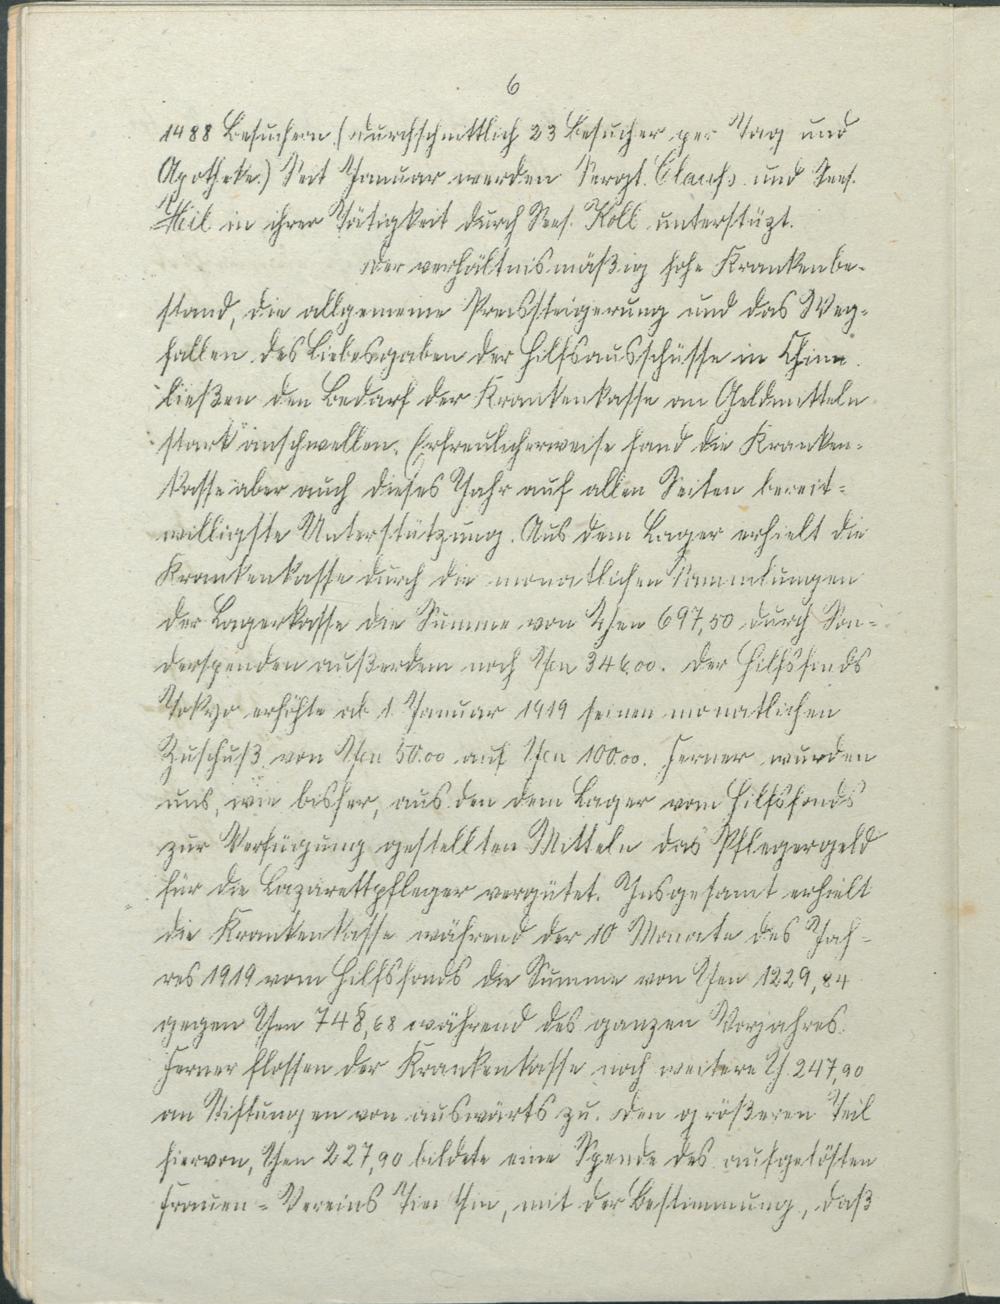 6
1488 Besuchern (durchschnittlich 23 Besucher per Tag und
Apotheke.) Seit Januar werden Sergt. Claus und Sees.
Heil in ihrer Tätigkeit durch Sees. Koll unterstüzt.
Der verhältnismäßig hohe Krankenbe-
stand, die allgemeine Preissteigerung und das Weg-
fallen des Liebesgaben der Hilfsausschüsse in China
ließen den Bedarf der Krankenkasse an Geldmitteln
stark anschwellen. Erfreulicherweise fand die Kranken-
kasse aber auch dieses Jahr auf allen Seiten bereit-
willigste Unterstützung. Aus dem Lager erhielt die
Krankenkasse durch die monatlichen Sammlungen
der Lagerkasse die Summe von Yen 697,50 durch Son-
derspenden außerdem noch Yen 346.00. Der Hilfsfonds
Tokyo erhöhte ab 1. Januar 1919 seinen monatlichen
Zuschuß von Yen 50.00 auf Yen 100.00. Ferner wurden
uns, wie bisher, aus den dem Lager vom Hilfsfonds
zur Verfügung gestellten Mitteln das Pflegergeld
für die Lazarettpfleger vergütet. Insgesamt erhielt
die Krankenkasse während der 10 Monate des Jah-
res 1919 vom Hilfsfonds die Summe von Yen 1229,84
gegen Yen 748,68 während des ganzen Vorjahres.
Ferner flossen der Krankenkasse noch weitere Y. 247,90
an Stiftungen von auswärts zu. Den größeren Teil
hiervon, Yen 227,90 bildete eine Spende des aufgelösten
Frauen-Vereins Tien Tsin, mit der Bestimmung, daß